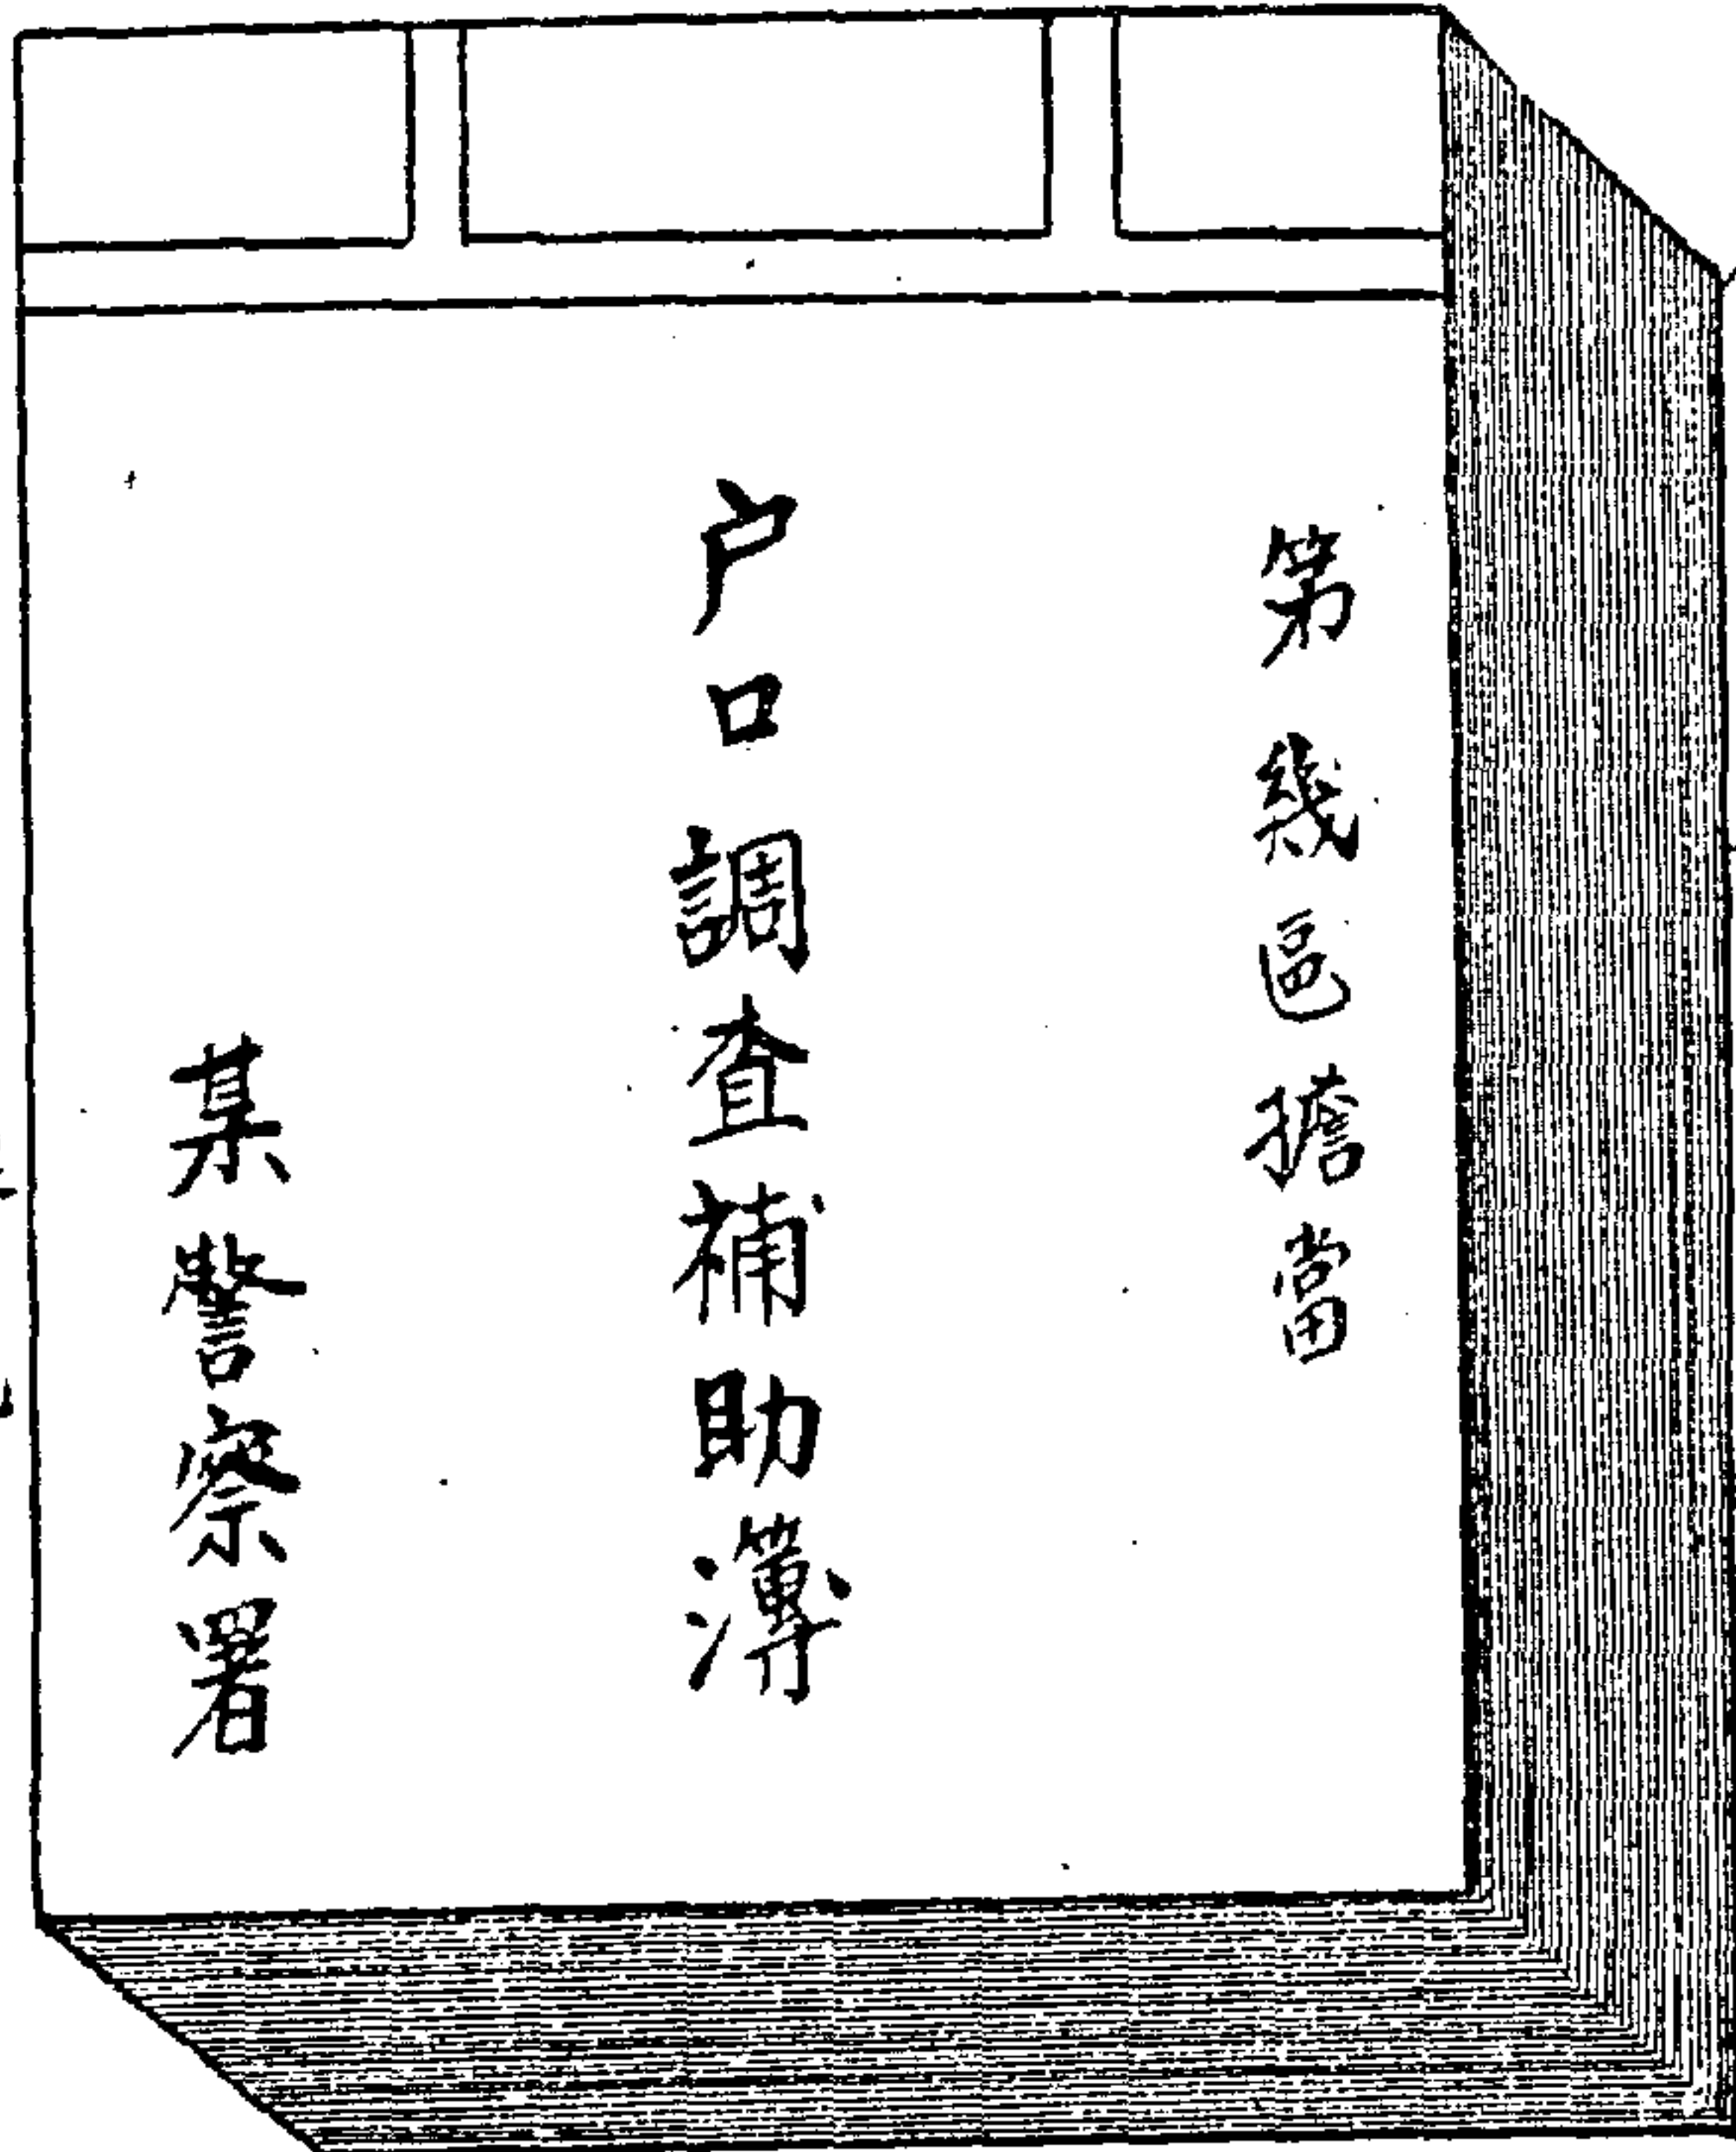 第幾區擔當
户口調查補助簿
某警察署